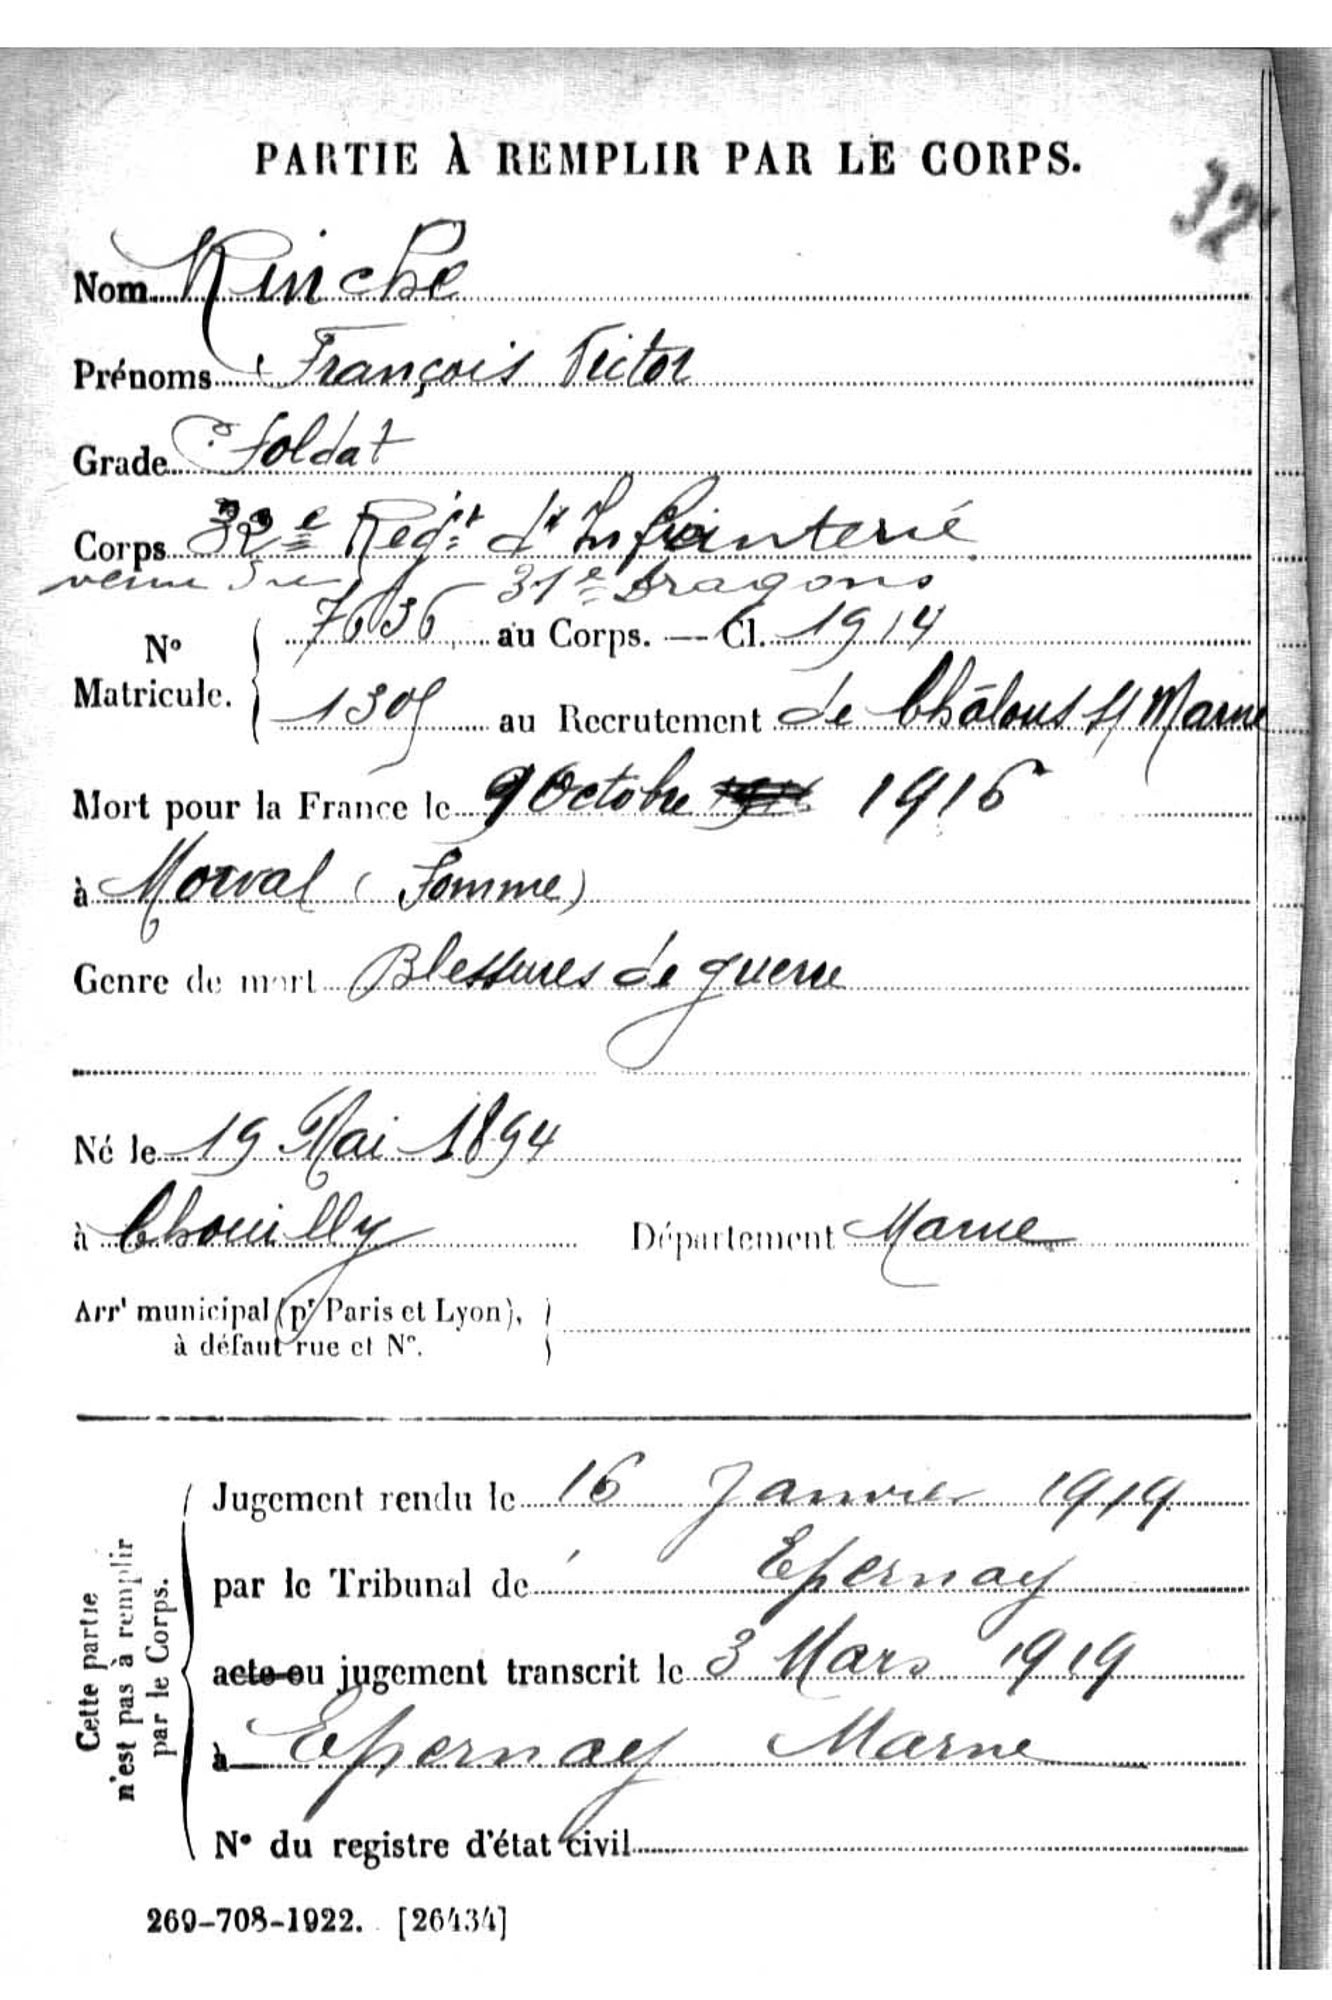 PARTIE À REMPLIR PAR LE CORPS.
32
Nom Kinche
Prénoms François Victor
Grade Soldat
Corps 32e Régt d'Infanterie
venu du 31e Dragons
No Matricule. 7636 au Corps. — Cl. 1914
1305 au Recrutement de Châlons s/ Marne
Mort pour la France le 9 Octobre 1916
à Morval (Somme)
Genre de mort Blessures de guerre
Né le 19 Mai 1894
à Chouilly Département Marne
Arrt municipal (pr Paris et Lyon),
à défaut rue et N°.
Cette partie
n'est pas à remplir
par le Corps.
Jugement rendu le 16 Janvier 1919
par le Tribunal de Epernay
acte ou jugement transcrit le 3 Mars 1919
à Epernay Marne
N° du registre d'état civil
269-708-1922. [26434]